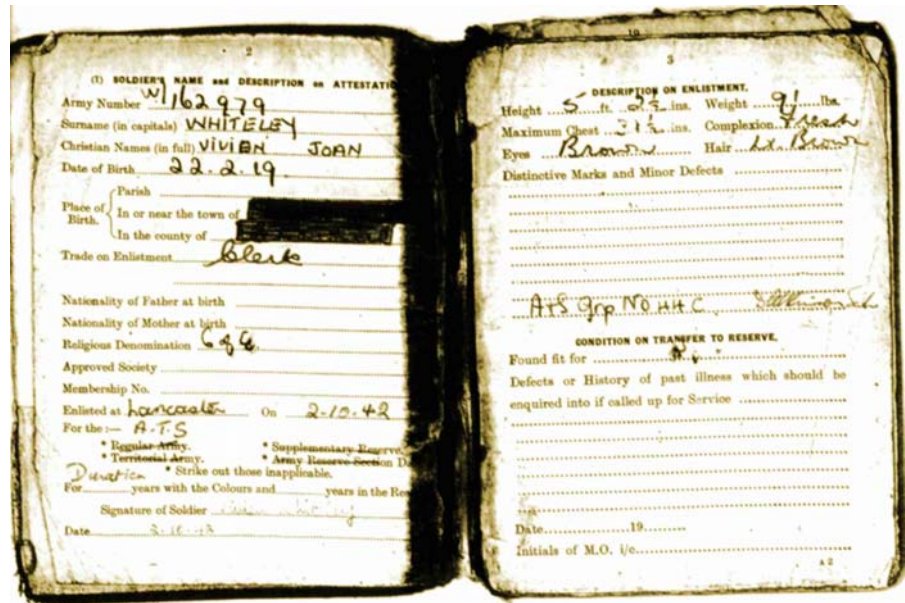 2
(1) SOLDIER'S NAME and DESCRIPTION on ATTESTATIO
Army Number W/162979
Surname (in capitals) WHITELEY
Christian Names (in full) VIVIEN JOAN
Date of Birth 22.2.19.
Place of Birth.
Parish
In or near the town of
In the county of
Trade on Enlistment Clerk
Nationality of Father at birth
Nationality of Mother at birth
Religious Denomination C of E
Approved Society
Membership No.
Enlisted at Lancaster On 2-10-42
For the :— A.T.S
* Regular Army. * Supplementary Reserve.
* Territorial Army. * Army Reserve Section D
* Strike out those inapplicable.
Duration
For years with the Colours and years in the Res
Signature of Soldier
Date
19
3
DESCRIPTION ON ENLISTMENT.
Height 5 ft. 2½ ins. Weight lbs.
Maximum Chest 31½ ins. Complexion Fresh
Eyes Brown Hair Lt. Brown
Distinctive Marks and Minor Defects
ATS Grp No
CONDITION ON TRANSFER TO RESERVE.
Found fit for
Defects or History of past illness which should be
enquired into if called up for Service
Date 19
Initials of M.O. i/c
A 2